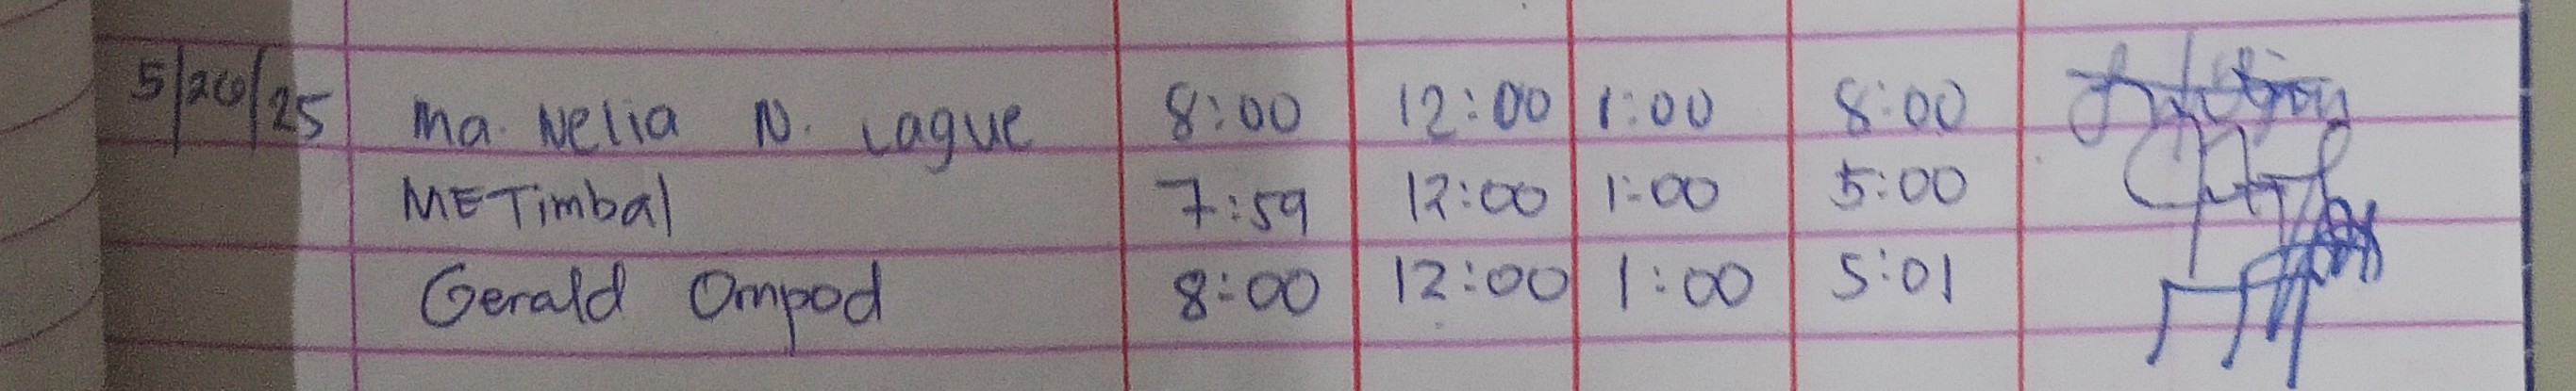 5/26/25 Ma. Nelia N. Lague 8:00 12:00 1:00 8:00
METimbal 7:59 12:00 1:00 5:00
Gerald Ompod 8:00 12:00 1:00 5:01